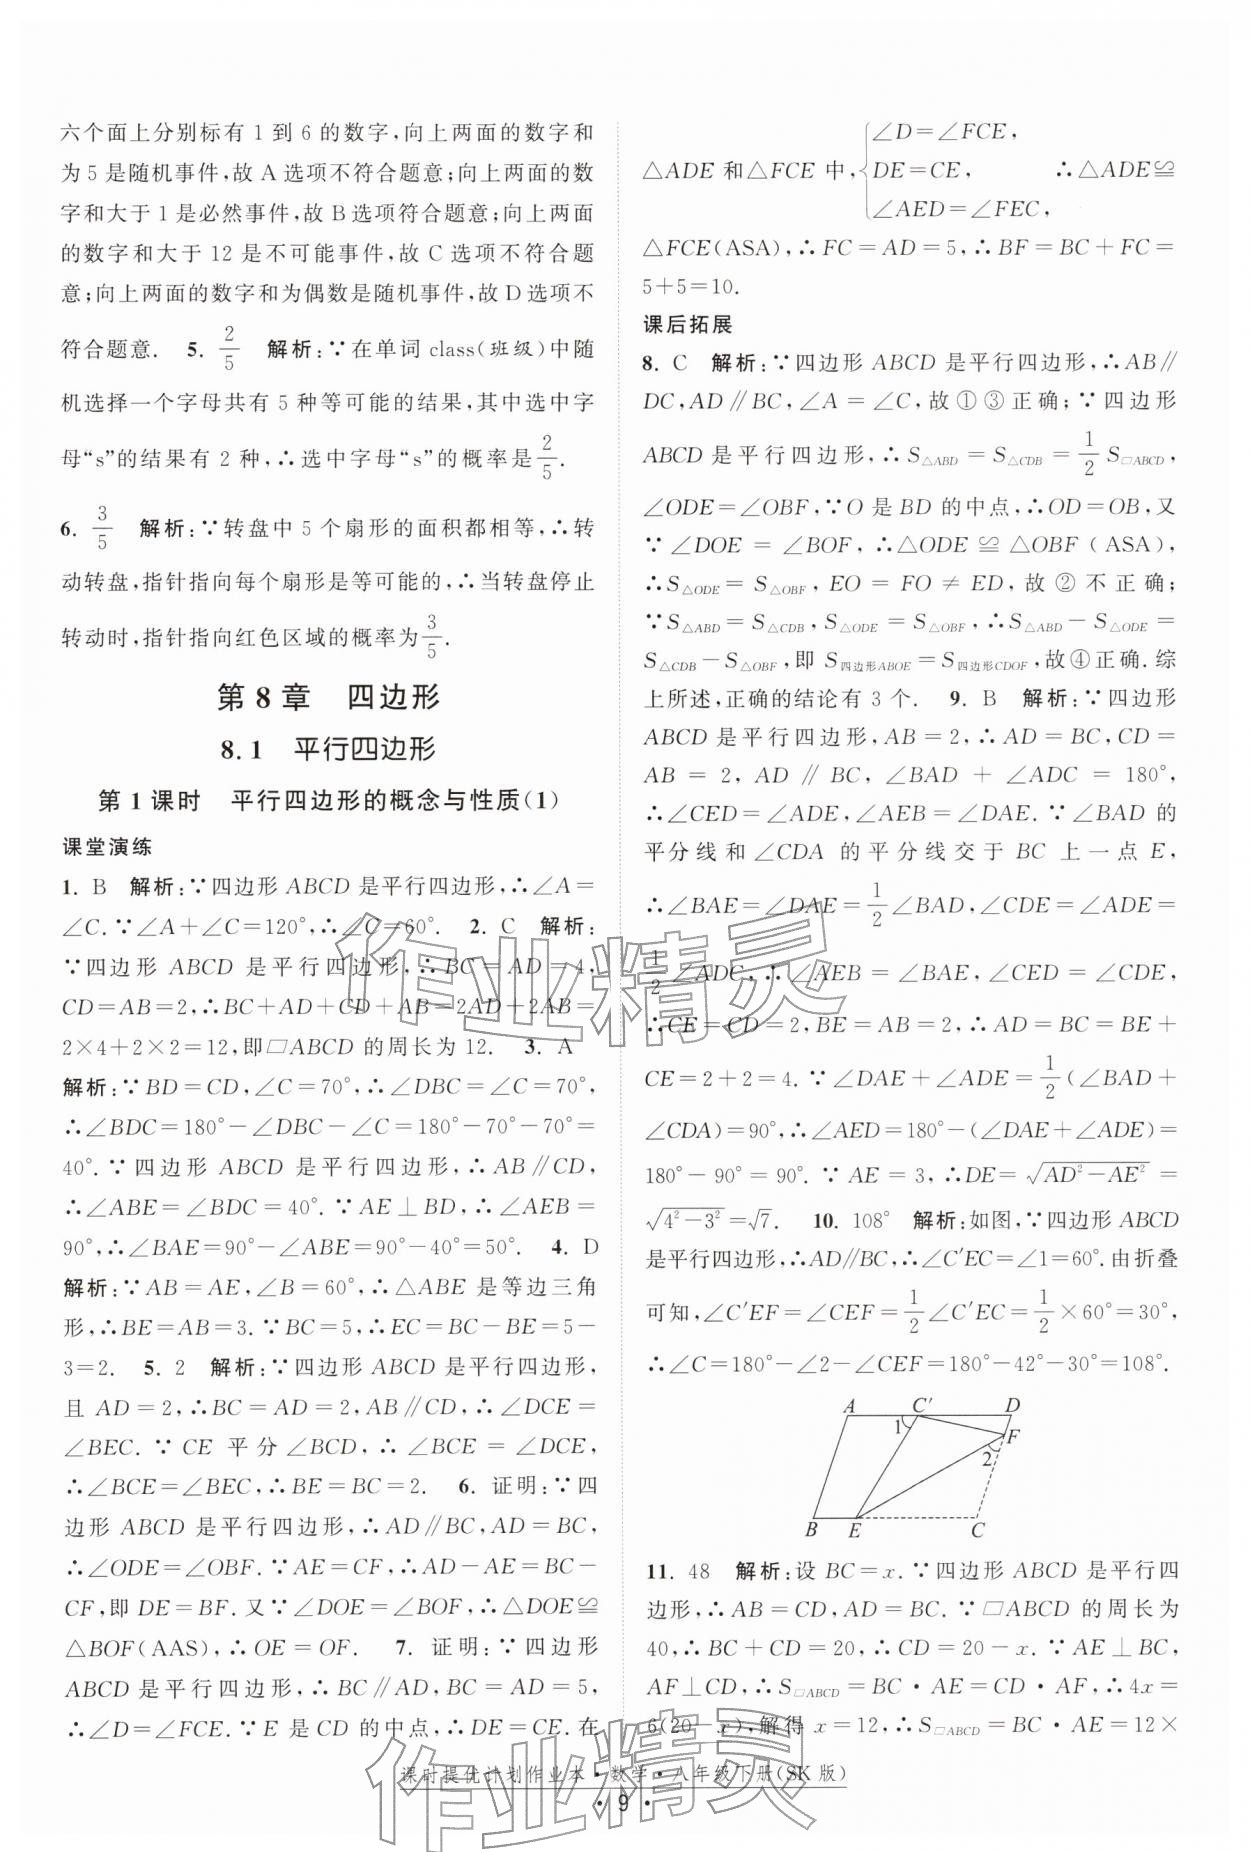 六个面上分别标有 1 到 6 的数字,向上两面的数字和
为 5 是随机事件,故 A 选项不符合题意;向上两面的数
字和大于 1 是必然事件,故 B 选项符合题意;向上两面
的数字和大于 12 是不可能事件,故 C 选项不符合题
意;向上两面的数字和为偶数是随机事件,故 D 选项不
符合题意. 5. 2/5 解析:∵在单词 class(班级)中随
机选择一个字母共有 5 种等可能的结果,其中选中字
母“s”的结果有 2 种,∴选中字母“s”的概率是 2/5.
6. 3/5 解析:∵转盘中 5 个扇形的面积都相等,∴转
动转盘,指针指向每个扇形是等可能的,∴当转盘停止
转动时,指针指向红色区域的概率为 3/5.
第 8 章 四边形
8.1 平行四边形
第 1 课时 平行四边形的概念与性质(1)
课堂演练
1. B 解析:∵四边形 ABCD 是平行四边形,∴∠A=
∠C.∵∠A+∠C=120°,∴∠C=60°. 2. C 解析:
∵四边形 ABCD 是平行四边形,∴BC=AD=4,
CD=AB=2,∴BC+AD+CD+AB=2AD+2AB=
2×4+2×2=12,即□ABCD 的周长为 12. 3. A
解析:∵BD=CD,∠C=70°,∴∠DBC=∠C=70°,
∴∠BDC=180°-∠DBC-∠C=180°-70°-70°=
40°.∵四边形 ABCD 是平行四边形,∴AB∥CD,
∴∠ABE=∠BDC=40°.∵AE⊥BD,∴∠AEB=
90°,∴∠BAE=90°-∠ABE=90°-40°=50°. 4. D
解析:∵AB=AE,∠B=60°,∴△ABE 是等边三角
形,∴BE=AB=3.∵BC=5,∴EC=BC-BE=5-
3=2. 5. 2 解析:∵四边形 ABCD 是平行四边形,
且 AD=2,∴BC=AD=2,AB∥CD,∴∠DCE=
∠BEC.∵CE 平分∠BCD,∴∠BCE=∠DCE,
∴∠BCE=∠BEC,∴BE=BC=2. 6. 证明:∵四
边形 ABCD 是平行四边形,∴AD∥BC,AD=BC,
∴∠ODE=∠OBF.∵AE=CF,∴AD-AE=BC-
CF,即 DE=BF.又∵∠DOE=∠BOF,∴△DOE≌
△BOF(AAS),∴OE=OF. 7. 证明:∵四边形
ABCD 是平行四边形,∴BC∥AD,BC=AD=5,
∴∠D=∠FCE.∵E 是 CD 的中点,∴DE=CE.在
∠D=∠FCE,
△ADE 和△FCE 中,{DE=CE, ∴△ADE≌
∠AED=∠FEC,
△FCE(ASA),∴FC=AD=5,∴BF=BC+FC=
5+5=10.
课后拓展
8. C 解析:∵四边形 ABCD 是平行四边形,∴AB∥
DC,AD∥BC,∠A=∠C,故①③正确;∵四边形
ABCD 是平行四边形,∴S△ABD=S△CDB=1/2 S□ABCD,
∠ODE=∠OBF,∵O 是 BD 的中点,∴OD=OB,又
∵∠DOE=∠BOF,∴△ODE≌△OBF(ASA),
∴S△ODE=S△OBF,EO=FO≠ED,故②不正确;
∵S△ABD=S△CDB,S△ODE=S△OBF,∴S△ABD-S△ODE=
S△CDB-S△OBF,即 S四边形ABOE=S四边形CDOF,故④正确.综
上所述,正确的结论有 3 个. 9. B 解析:∵四边形
ABCD 是平行四边形,AB=2,∴AD=BC,CD=
AB=2,AD∥BC,∠BAD+∠ADC=180°,
∴∠CED=∠ADE,∠AEB=∠DAE.∵∠BAD 的
平分线和∠CDA 的平分线交于 BC 上一点 E,
∴∠BAE=∠DAE=1/2∠BAD,∠CDE=∠ADE=
1/2∠ADC,∴∠AEB=∠BAE,∠CED=∠CDE,
∴CE=CD=2,BE=AB=2,∴AD=BC=BE+
CE=2+2=4.∵∠DAE+∠ADE=1/2(∠BAD+
∠CDA)=90°,∴∠AED=180°-(∠DAE+∠ADE)=
180°-90°=90°.∵AE=3,∴DE=√(AD²-AE²)=
√(4²-3²)=√7. 10. 108° 解析:如图,∵四边形 ABCD
是平行四边形,∴AD∥BC,∴∠C′EC=∠1=60°.由折叠
可知,∠C′EF=∠CEF=1/2∠C′EC=1/2×60°=30°,
∴∠C=180°-∠2-∠CEF=180°-42°-30°=108°.
A C′ D
1
F
2
B E C
11. 48 解析:设 BC=x.∵四边形 ABCD 是平行四
边形,∴AB=CD,AD=BC.∵□ABCD 的周长为
40,∴BC+CD=20,∴CD=20-x.∵AE⊥BC,
AF⊥CD,∴S□ABCD=BC·AE=CD·AF,∴4x=
6(20-x),解得 x=12,∴S□ABCD=BC·AE=12×
课时提优计划作业本·数学·八年级下册(SK 版)
· 9 ·
作业精灵
作业精灵